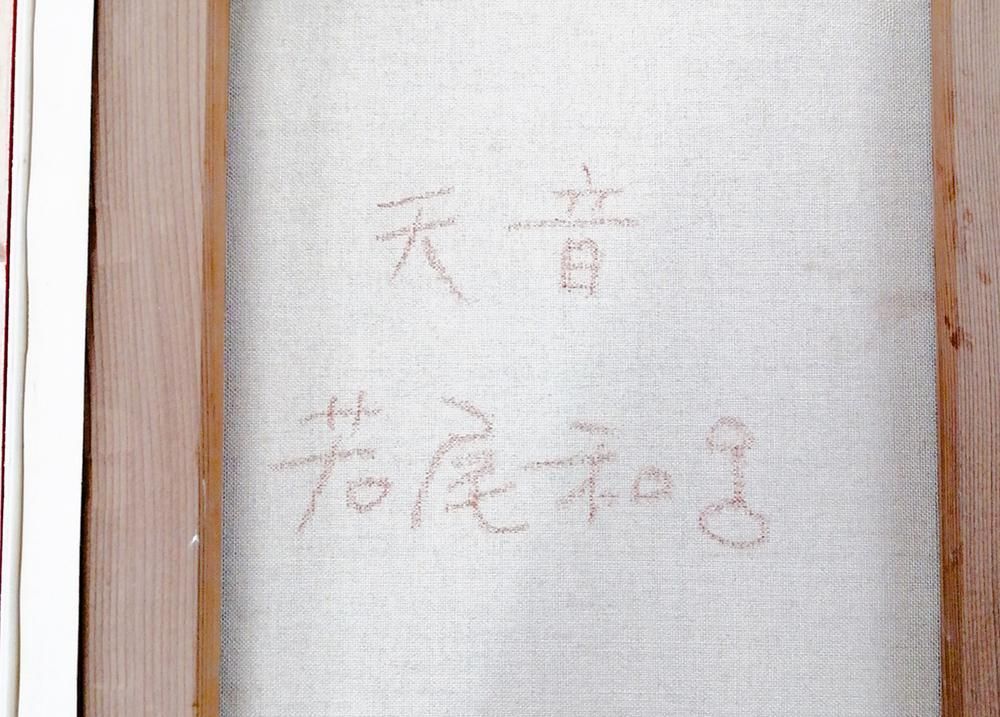 天音
若尾和呂